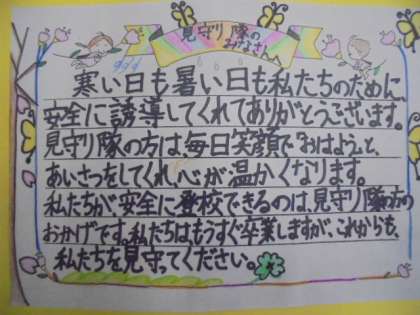 見守り隊の
みなさん
寒い日も暑い日も私たちのために、
安全に誘導してくれてありがとうございます。
見守り隊の方は毎日笑顔で「おはよう」と、
あいさつをしてくれ、心が温かくなります。
私たちが安全に登校できるのは、見守り隊の方の
おかげです。私たちは、もうすぐ卒業しますが、これからも、
私たちを見守ってください。